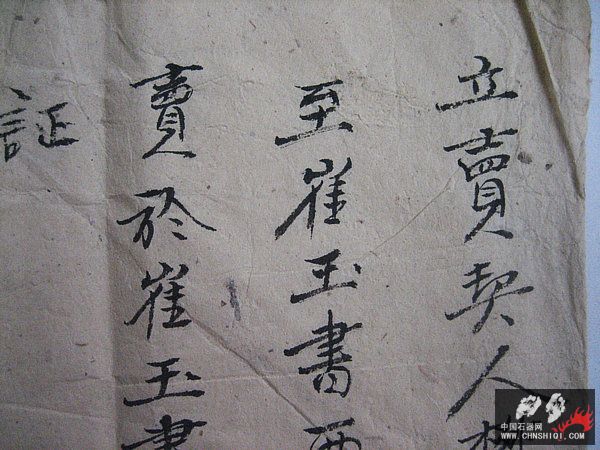 立賣契人
至崔玉書西
賣於崔玉書
証
中国石器网
WWW.CHNSHIQI.COM